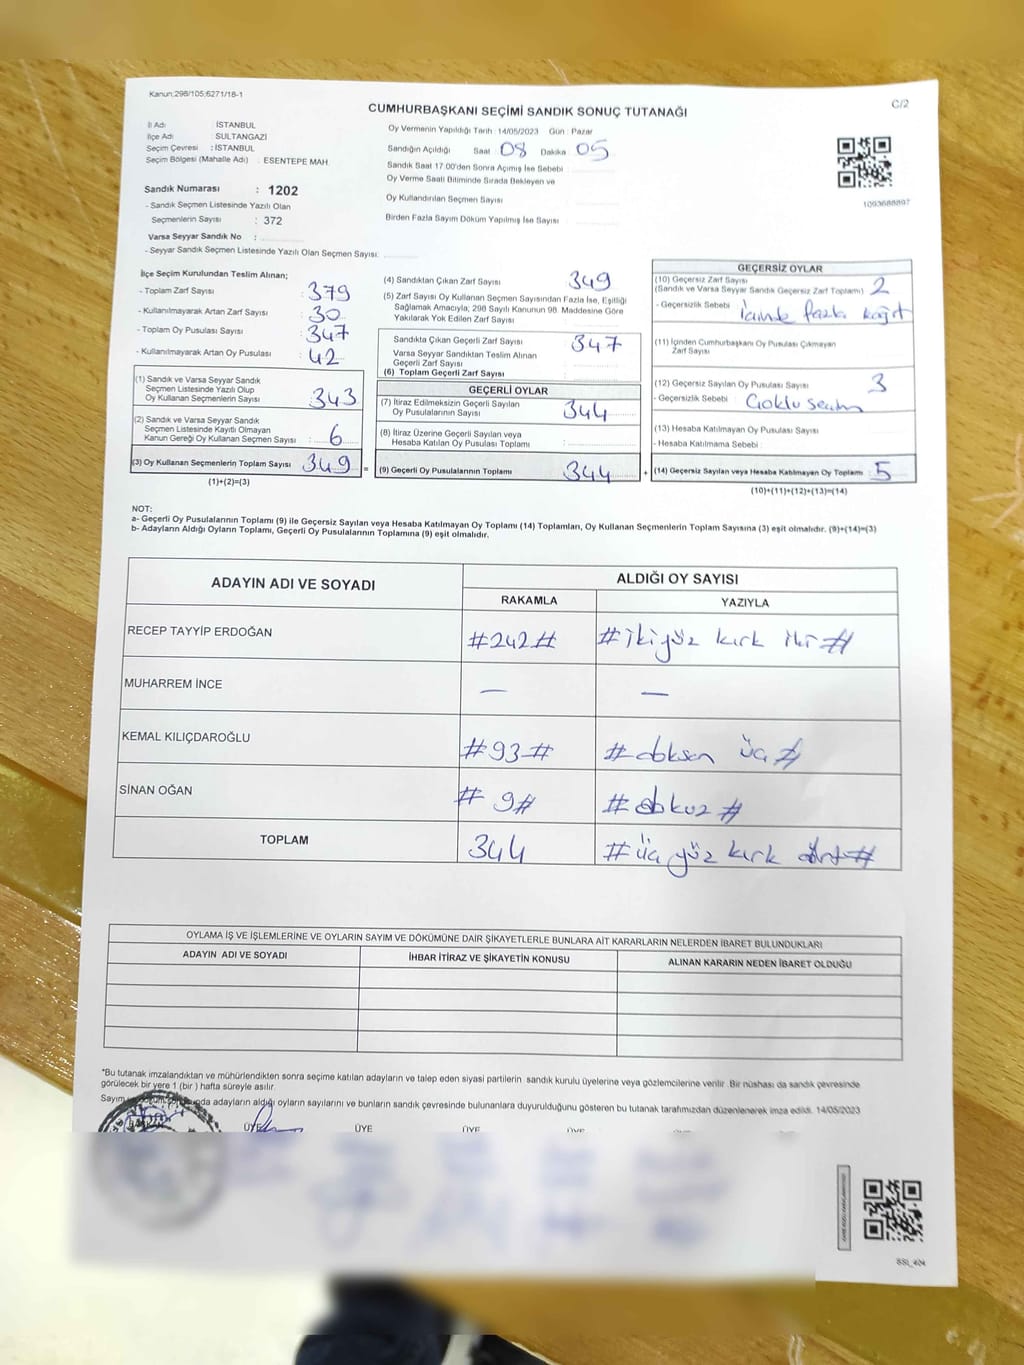 Kanun:298/105;6271/18-1
C/2
CUMHURBAŞKANI SEÇİMİ SANDIK SONUÇ TUTANAĞI
İl Adı : İSTANBUL
İlçe Adı : SULTANGAZİ
Seçim Çevresi : İSTANBUL
Seçim Bölgesi (Mahalle Adı) : ESENTEPE MAH.
Sandık Numarası : 1202
- Sandık Seçmen Listesinde Yazılı Olan
Seçmenlerin Sayısı : 372
Varsa Seyyar Sandık No :
- Seyyar Sandık Seçmen Listesinde Yazılı Olan Seçmen Sayısı:
Oy Vermenin Yapıldığı Tarih : 14/05/2023 Gün : Pazar
Sandığın Açıldığı Saat 08 Dakika 05
Sandık Saat 17.00'den Sonra Açımış İse Sebebi :
Oy Verme Saati Bitiminde Sırada Bekleyen ve
Oy Kullandırılan Seçmen Sayısı
Birden Fazla Sayım Döküm Yapılmış İse Sayısı
1093688897
İlçe Seçim Kurulundan Teslim Alınan;
- Toplam Zarf Sayısı : 379
- Kullanılmayarak Artan Zarf Sayısı : 30
- Toplam Oy Pusulası Sayısı : 347
- Kullanılmayarak Artan Oy Pusulası : 42
(1) Sandık ve Varsa Seyyar Sandık
Seçmen Listesinde Yazılı Olup
Oy Kullanan Seçmenlerin Sayısı : 343
(2) Sandık ve Varsa Seyyar Sandık
Seçmen Listesinde Kayıtlı Olmayan
Kanun Gereği Oy Kullanan Seçmen Sayısı : 6
(3) Oy Kullanan Seçmenlerin Toplam Sayısı : 349 =
(1)+(2)=(3)
(4) Sandıktan Çıkan Zarf Sayısı 349
(5) Zarf Sayısı Oy Kullanan Seçmen Sayısından Fazla İse, Eşitliği
Sağlamak Amacıyla, 298 Sayılı Kanunun 98. Maddesine Göre
Yakılarak Yok Edilen Zarf Sayısı
Sandıkta Çıkan Geçerli Zarf Sayısı 347
Varsa Seyyar Sandıktan Teslim Alınan
Geçerli Zarf Sayısı
(6) Toplam Geçerli Zarf Sayısı
GEÇERLİ OYLAR
(7) İtiraz Edilmeksizin Geçerli Sayılan
Oy Pusulalarının Sayısı : 344
(8) İtiraz Üzerine Geçerli Sayılan veya
Hesaba Katılan Oy Pusulası Toplamı :
(9) Geçerli Oy Pusulalarının Toplamı : 344 +
GEÇERSİZ OYLAR
(10) Geçersiz Zarf Sayısı
(Sandık ve Varsa Seyyar Sandık Geçersiz Zarf Toplamı) : 2
- Geçersizlik Sebebi : İçinde fazla kağıt
(11) İçinden Cumhurbaşkanı Oy Pusulası Çıkmayan
Zarf Sayısı
(12) Geçersiz Sayılan Oy Pusulası Sayısı : 3
- Geçersizlik Sebebi : Çoklu seçim
(13) Hesaba Katılmayan Oy Pusulası Sayısı :
- Hesaba Katılmama Sebebi :
(14) Geçersiz Sayılan veya Hesaba Katılmayan Oy Toplamı : 5
(10)+(11)+(12)+(13)=(14)
NOT:
a- Geçerli Oy Pusulalarının Toplamı (9) ile Geçersiz Sayılan veya Hesaba Katılmayan Oy Toplamı (14) Toplamları, Oy Kullanan Seçmenlerin Toplam Sayısına (3) eşit olmalıdır. (9)+(14)=(3)
b- Adayların Aldığı Oyların Toplamı, Geçerli Oy Pusulalarının Toplamına (9) eşit olmalıdır.
ADAYIN ADI VE SOYADI
ALDIĞI OY SAYISI
RAKAMLA YAZIYLA
RECEP TAYYİP ERDOĞAN #242# #iki yüz kırk iki#
MUHARREM İNCE — —
KEMAL KILIÇDAROĞLU #93# #doksan üç#
SİNAN OĞAN #9# #dokuz#
TOPLAM 344 #üç yüz kırk dört#
OYLAMA İŞ VE İŞLEMLERİNE VE OYLARIN SAYIM VE DÖKÜMÜNE DAİR ŞİKAYETLERLE BUNLARA AİT KARARLARIN NELERDEN İBARET BULUNDUKLARI
ADAYIN ADI VE SOYADI İHBAR İTİRAZ VE ŞİKAYETİN KONUSU ALINAN KARARIN NEDEN İBARET OLDUĞU
*Bu tutanak imzalandıktan ve mühürlendikten sonra seçime katılan adayların ve talep eden siyasi partilerin sandık kurulu üyelerine veya gözlemcilerine verilir. Bir nüshası da sandık çevresinde
görülecek bir yere 1 (bir ) hafta süreyle asılır.
adayların aldığı oyların sayılarını ve bunların sandık çevresinde bulunanlara duyurulduğunu gösteren bu tutanak tarafımızdan düzenlenerek imza edildi. 14/05/2023
BAŞKAN ÜYE ÜYE ÜYE ÜYE ÜYE
SSL_404